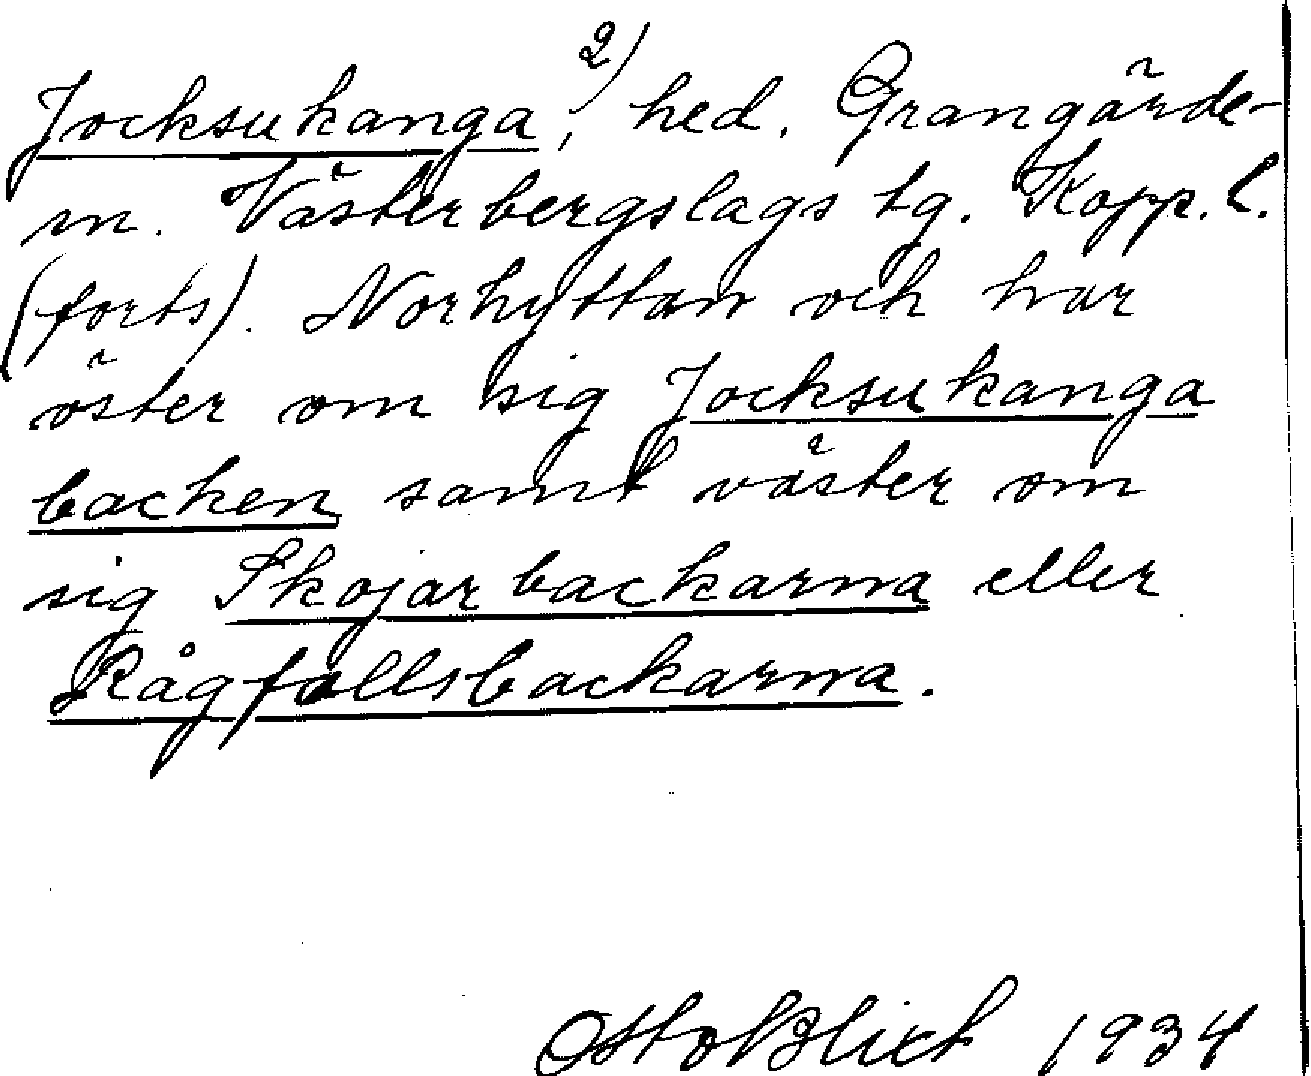 Jocksukanga,²⁾ hed. Grangärde-
m. Västerbergslags tg. Kopp. l.
(forts). Norhyttan och har
öster om sig Jocksukanga
backen samt väster om
sig Skojarbackarna eller
Rågfallsbackarna.
Otto Blixt 1934